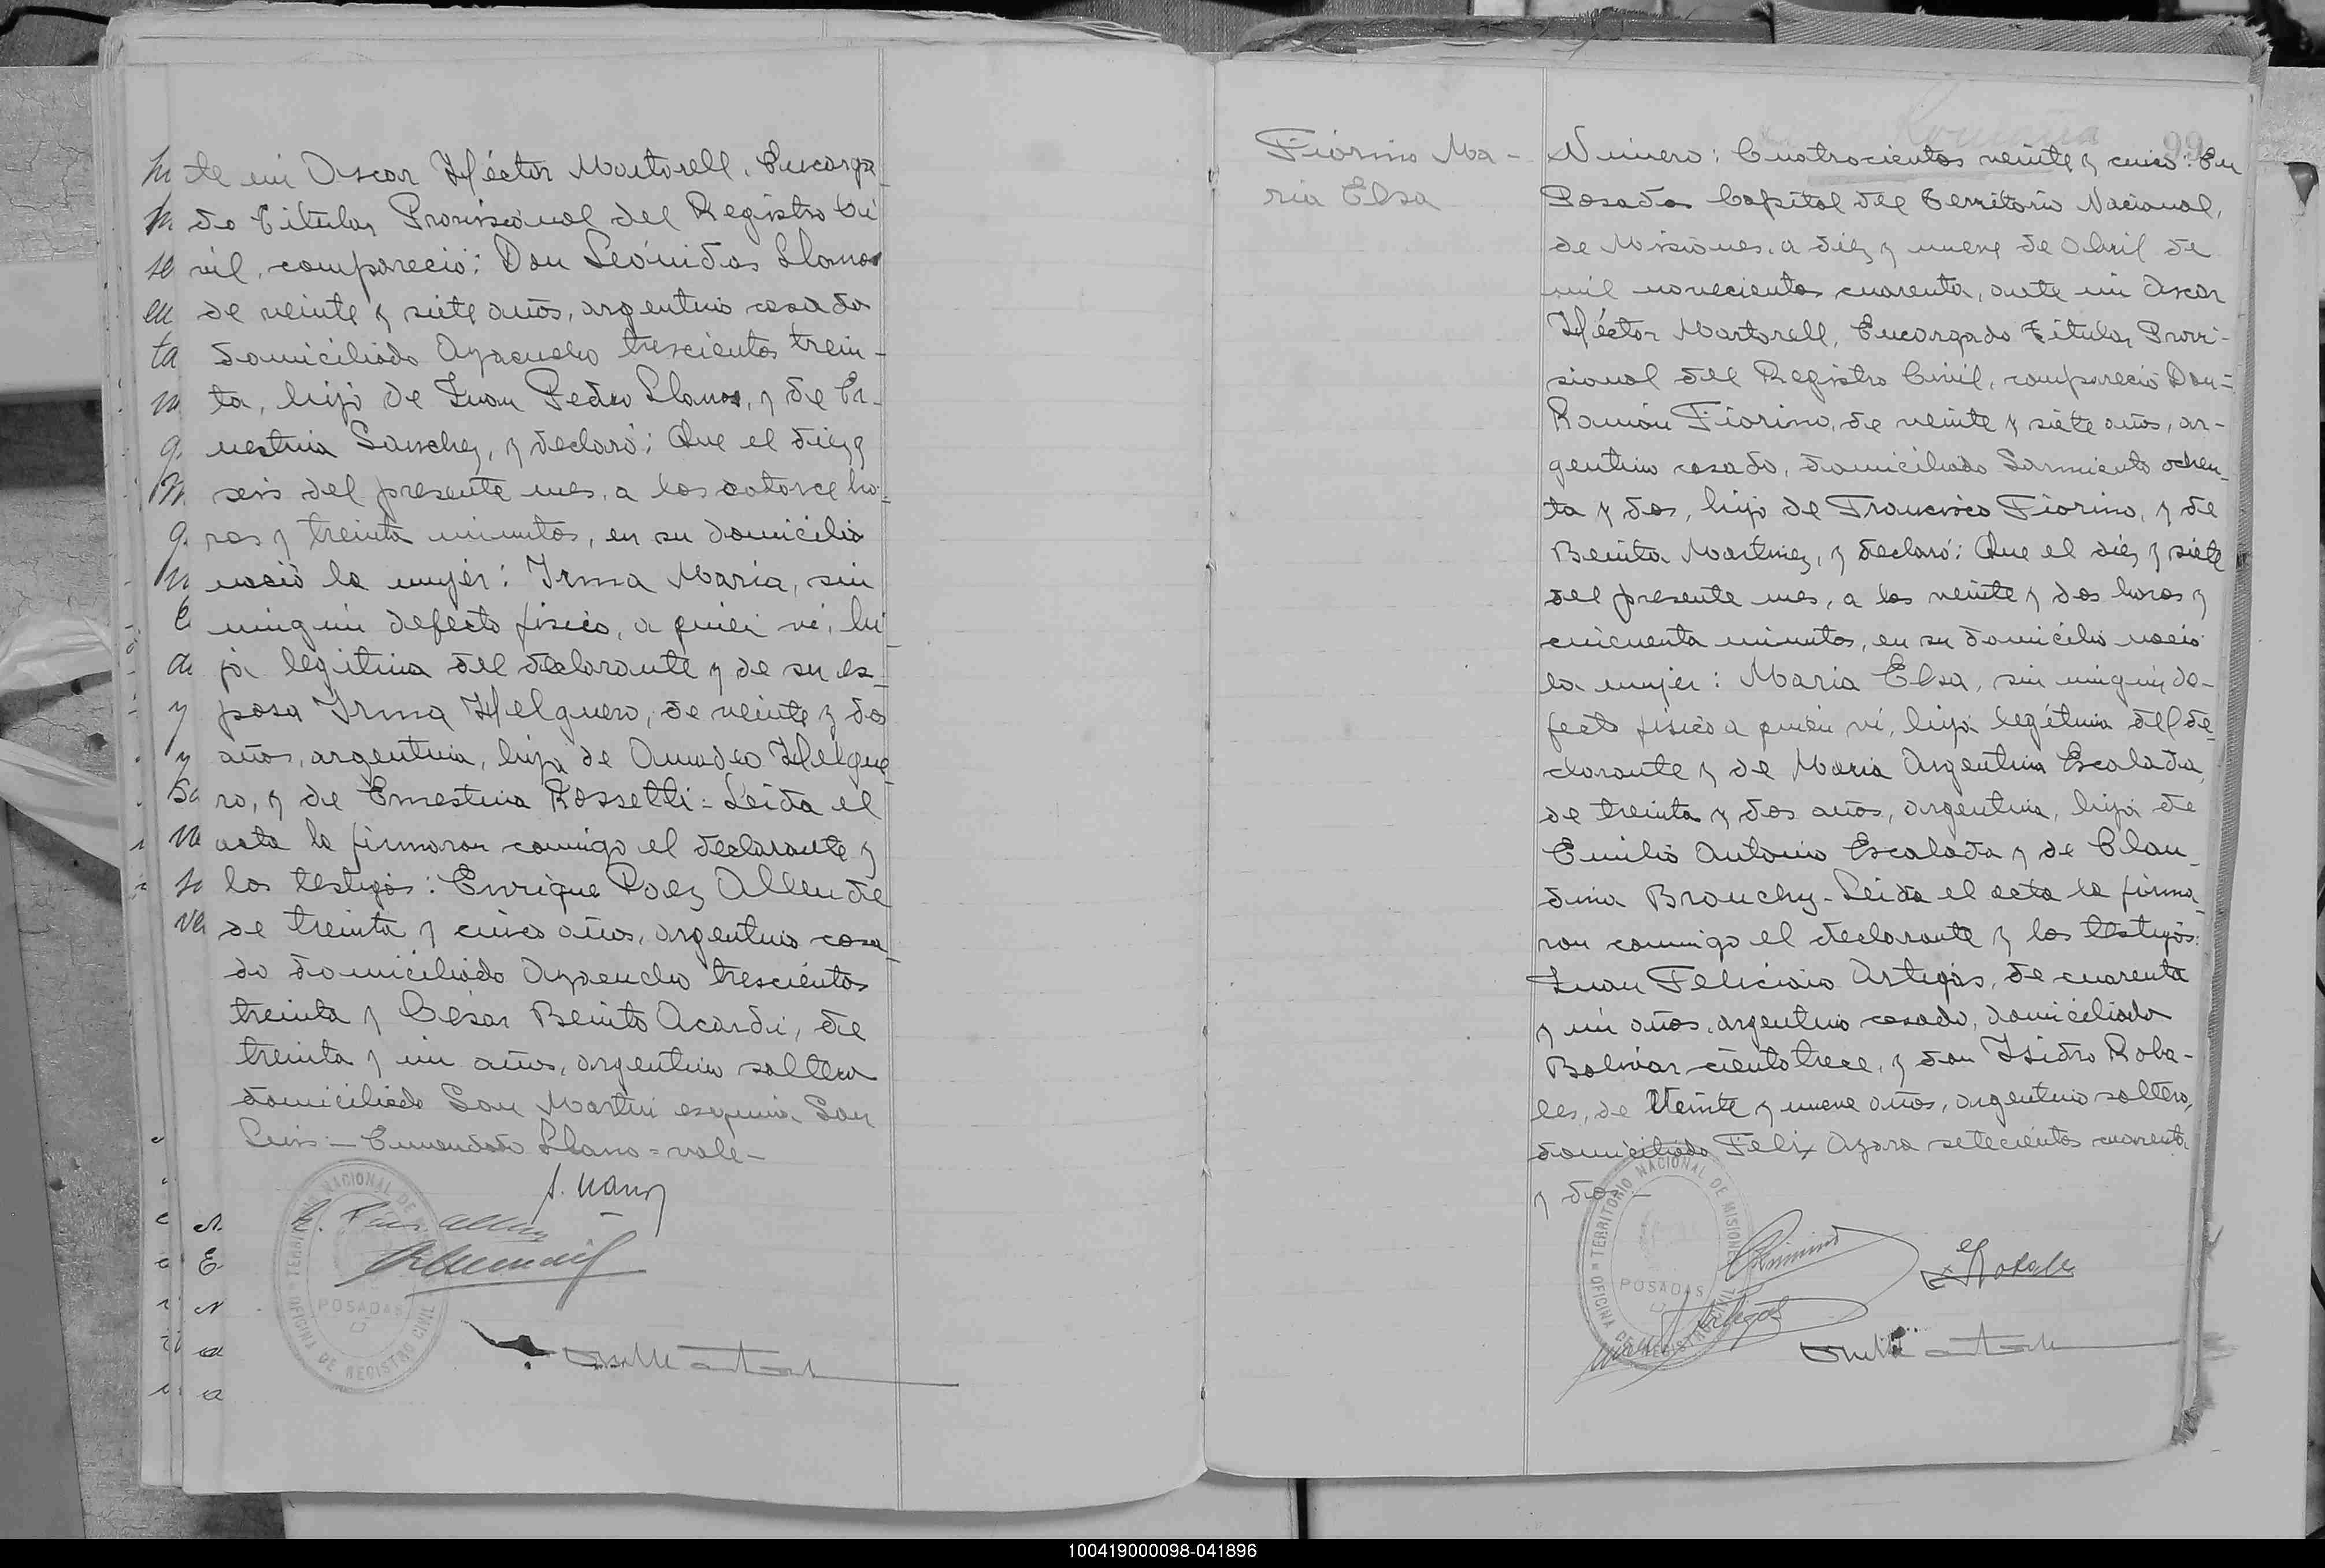 te mi Oscar Héctor Martorell, Encarga-
do Titular Provisional del Registro Ci-
vil, compareció: Don Leónidas Llanos
de veinte y siete años, argentino casado
domiciliado Ayacucho trescientos trein-
ta, hijo de Juan Pedro Llanos, y de Er-
nestina Sanchez, y declaró: Que el diez y
seis del presente mes, a las catorce ho-
ras y treinta minutos, en su domicilio
nació la mujer: Irma Maria, sin
ningún defecto físico, a quien ví, hi-
ja legítima del declarante y de su es-
posa Irma Helguero, de veinte y dos
años, argentina, hija de Amadeo Helgue-
ro, y de Ernestina Rossetti = Leida el
acta la firmaron conmigo el declarante y
los testigos: Enrique Paez Allende
de treinta y cinco años, argentino casa-
do domiciliado Ayacucho trescientos
treinta y César Benito Acardi, de
treinta y un años, argentino soltero
domiciliado San Martin esquina San
Luis = Enmendado Llano = vale -
TERRITORIO NACIONAL DE
POSADAS
OFICINA DE REGISTRO CIVIL
Fiorino Ma-
ria Elsa
99
Número: Cuatrocientos veinte y cinco: En
Posadas Capital del Territorio Nacional,
de Misiones, a diez y nueve de Abril de
mil novecientos cuarenta, ante mi Oscar
Héctor Martorell, Encargado Titular Provi-
sional del Registro Civil, compareció Don =
Ramón Fiorino, de veinte y siete años, ar-
gentino casado, domiciliado Sarmiento ochen-
ta y dos, hijo de Francisco Fiorino, y de
Benita Martinez, y declaró: Que el diez y siete
del presente mes, a las veinte y dos horas y
cincuenta minutos, en su domicilio nació
la mujer: Maria Elsa, sin ningún de-
fecto físico a quien ví, hija legítima del de-
clarante y de Maria Argentina Escalada,
de treinta y dos años, argentina, hija de
Emilio Antonio Escalada y de Clau-
dina Brouchy - Leida el acta la firma-
ron conmigo el declarante y los testigos:
Juan Feliciano Artigas, de cuarenta
y un años, argentino casado, domiciliado
Bolivar ciento trece, y don Isidro Roba-
les, de veinte y nueve años, argentino soltero,
domiciliado Felix Azara setecientos cuarenta
y dos -
TERRITORIO NACIONAL DE MISIONES
POSADAS
OFICINA DE REGISTRO CIVIL
100419000098-041896